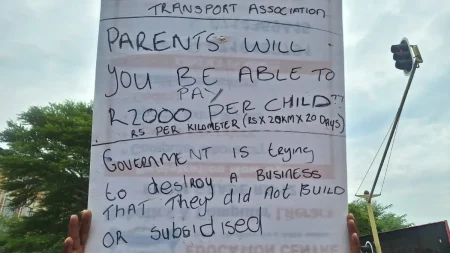 TRANSPORT ASSOCIATION
PARENTS WILL
YOU BE ABLE TO
PAY
R2000 PER CHILD??
R5 PER KILOMETER (R5 X 20KM X 20 DAYS)
GOVERNMENT IS trying
to destroy A BUSINESS
THAT They did Not BUILD
OR subsidised
EDUCATION CENTRE